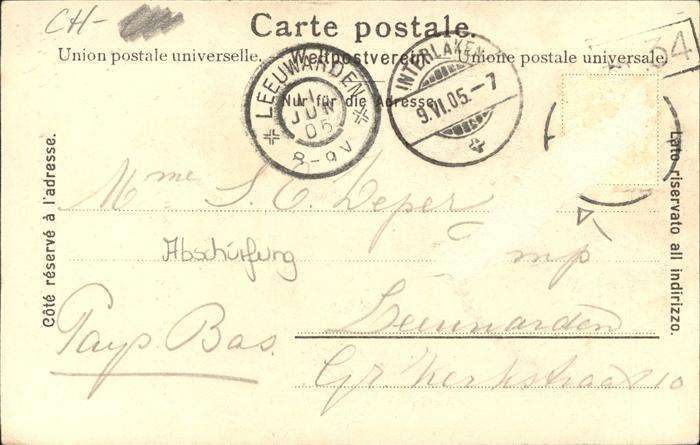 CH-
Carte postale.
Union postale universelle. Weltpostverein. Unione postale universale.
Nur für die Adresse.
LEEUWARDEN
11
JUN
05
8-9V
INTERLAKEN
9.VI.05.-7
34
Côté réservé à l'adresse.
Lato riservato all indirizzo.
Mme S. C. Deper
Abschürfung
Leeuwarden
Pays Bas.
Gr. Kerkstraat 10